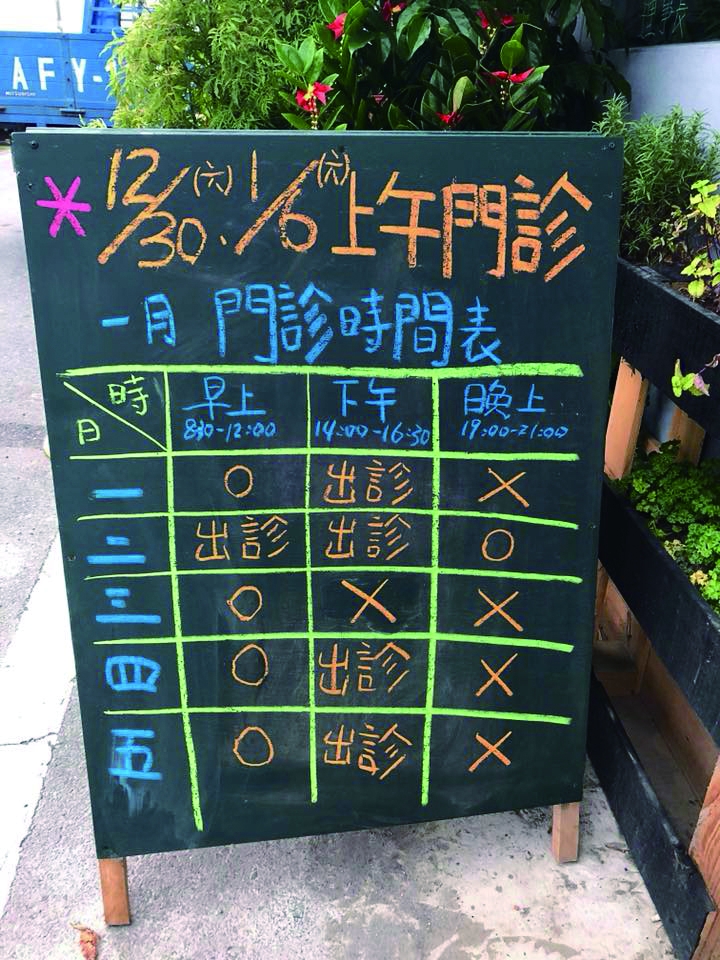 AFY-
* 12/30(六)、1/6(六)上午門診
一月 門診時間表
時 日 早上 下午 晚上
8:30-12:00 14:00-16:30 19:00-21:00
一 ○ 出診 ×
二 出診 出診 ○
三 ○ × ×
四 ○ 出診 ×
五 ○ 出診 ×